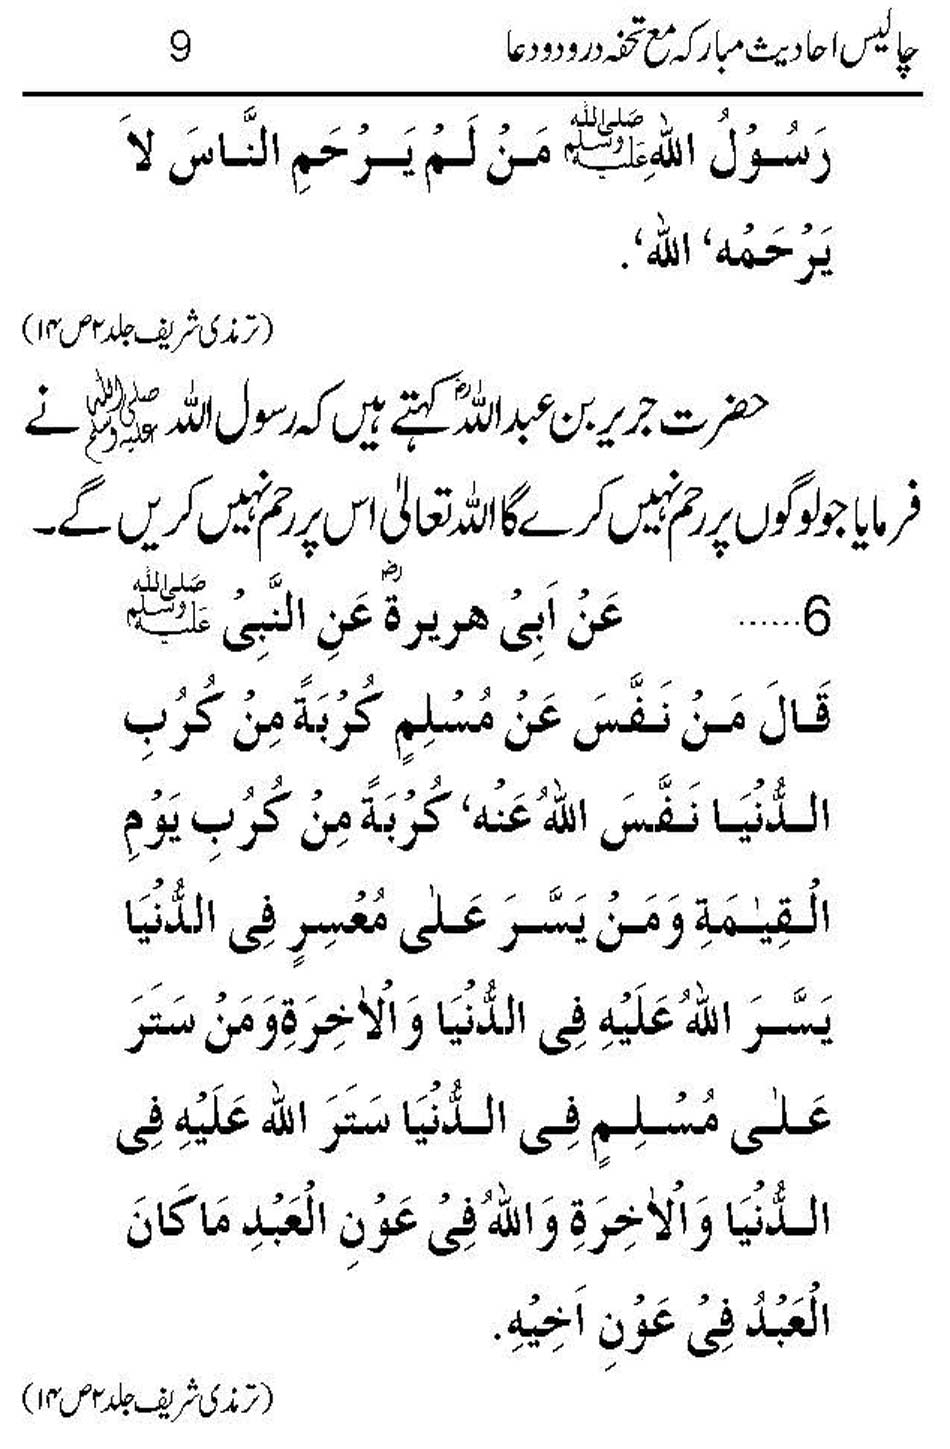 چالیس احادیث مبارکہ مع تحفہ درود و دعا 9
رَسُوْلُ اللهِ ﷺ مَنْ لَمْ يَرْحَمِ النَّاسَ لاَ
يَرْحَمْه‘ الله‘.
(ترمذی شریف جلد ۲ ص ۱۴)
حضرت جریر بن عبداللہؓ کہتے ہیں کہ رسول اللہ ﷺ نے
فرمایا جو لوگوں پر رحم نہیں کرے گا اللہ تعالیٰ اس پر رحم نہیں کریں گے۔
6...... عَنْ اَبِىْ هريرةؓ عَنِ النَّبِىْ ﷺ
قَالَ مَنْ نَفَّسَ عَنْ مُسْلِمٍ كُرْبَةً مِنْ كُرُبِ
الدُّنْيَا نَفَّسَ اللهُ عَنْه‘ كُرْبَةً مِنْ كُرُبِ يَوْمِ
الْقِيٰمَةِ وَمَنْ يَسَّرَ عَلٰى مُعْسِرٍ فِى الدُّنْيَا
يَسَّرَ اللهُ عَلَيْهِ فِى الدُّنْيَا وَالْاٰخِرَةِ وَمَنْ سَتَرَ
عَلٰى مُسْلِمٍ فِى الدُّنْيَا سَتَرَ الله عَلَيْهِ فِى
الدُّنْيَا وَالْاٰخِرَةِ وَاللهُ فِىْ عَوْنِ الْعَبْدِ مَا كَانَ
الْعَبْدُ فِىْ عَوْنِ اَخِيْهِ.
(ترمذی شریف جلد ۲ ص ۱۴)